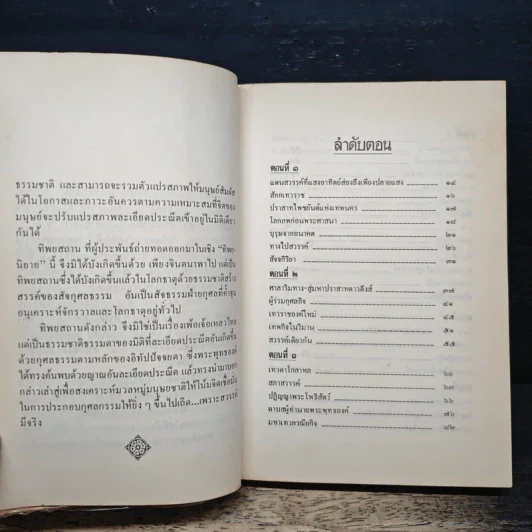 ธรรมชาติ และสามารถจะรวมตัวแปรสภาพให้มนุษย์สัมผัส
ได้ในโอกาสและภาวะอันควรตามความเหมาะสมที่จิตของ
มนุษย์จะปรับแปรสภาพละเอียดประณีตเข้าอยู่ในมิติเดียว
กันได้
ทิพยสถาน ที่ผู้ประพันธ์ถ่ายทอดออกมาในเชิง "ทิพย
นิยาย" นี้ จึงมิได้บังเกิดขึ้นด้วย เพียงจินตนาพาไป แต่เป็น
ทิพยสถานซึ่งได้บังเกิดขึ้นแล้วในโลกธาตุด้วยธรรมชาติสร้าง
สรรค์ของสัจกุศลธรรม อันเป็นสัจธรรมฝ่ายกุศลที่ค้ำจุน
อนุเคราะห์จักรวาลและโลกธาตุอยู่ทั่วไป
ทิพยสถานดังกล่าว จึงมิใช่เป็นเรื่องเพ้อเจ้อเหลวไหล
แต่เป็นธรรมชาติธรรมดาของมิติที่ละเอียดประณีตอันเกิดขึ้น
ด้วยกุศลธรรมตามหลักของอิทัปปัจจยตา ซึ่งพระพุทธองค์
ได้ทรงค้นพบด้วยญาณอันละเอียดประณีต แล้วทรงนำมาบอก
กล่าวเล่าสู่เพื่อสงเคราะห์มวลหมู่มนุษยชาติให้โน้มจิตเชื่อมั่น
ในการประกอบกุศลกรรมให้ยิ่ง ๆ ขึ้นไปเถิด...เพราะสวรรค์
มีจริง
ลำดับตอน
ตอนที่ ๑
แดนสวรรค์ที่แสงอาทิตย์ส่องถึงเพียงปลายแสง ๑๔
สักกเทวราช ๑๕
ปราสาทไพชยันต์แห่งเทพนคร ๑๗
โลกภพก่อนพระศาสนา ๑๘
บุรุษจากอนาคต ๒๑
ทางไปสวรรค์ ๒๖
สัจจกิริยา ๓๑
ตอนที่ ๒
ศาลาริมทาง-สู่มหาปราสาทดาวดึงส์ ๓๗
ผู้ร่วมกุศลกิจ ๔๑
เทวราชองค์ใหม่ ๔๕
เทพกิจในวิมาน ๕๑
สวรรค์เดียวกัน ๕๕
ตอนที่ ๓
เทวดาโกลาหล ๖๐
สภาสวรรค์ ๖๓
ปฏิญญาพระโพธิสัตว์ ๖๖
ดาบสผู้ทำนายพระพุทธองค์ ๗๖
มหาเทวกรณียกิจ ๘๒